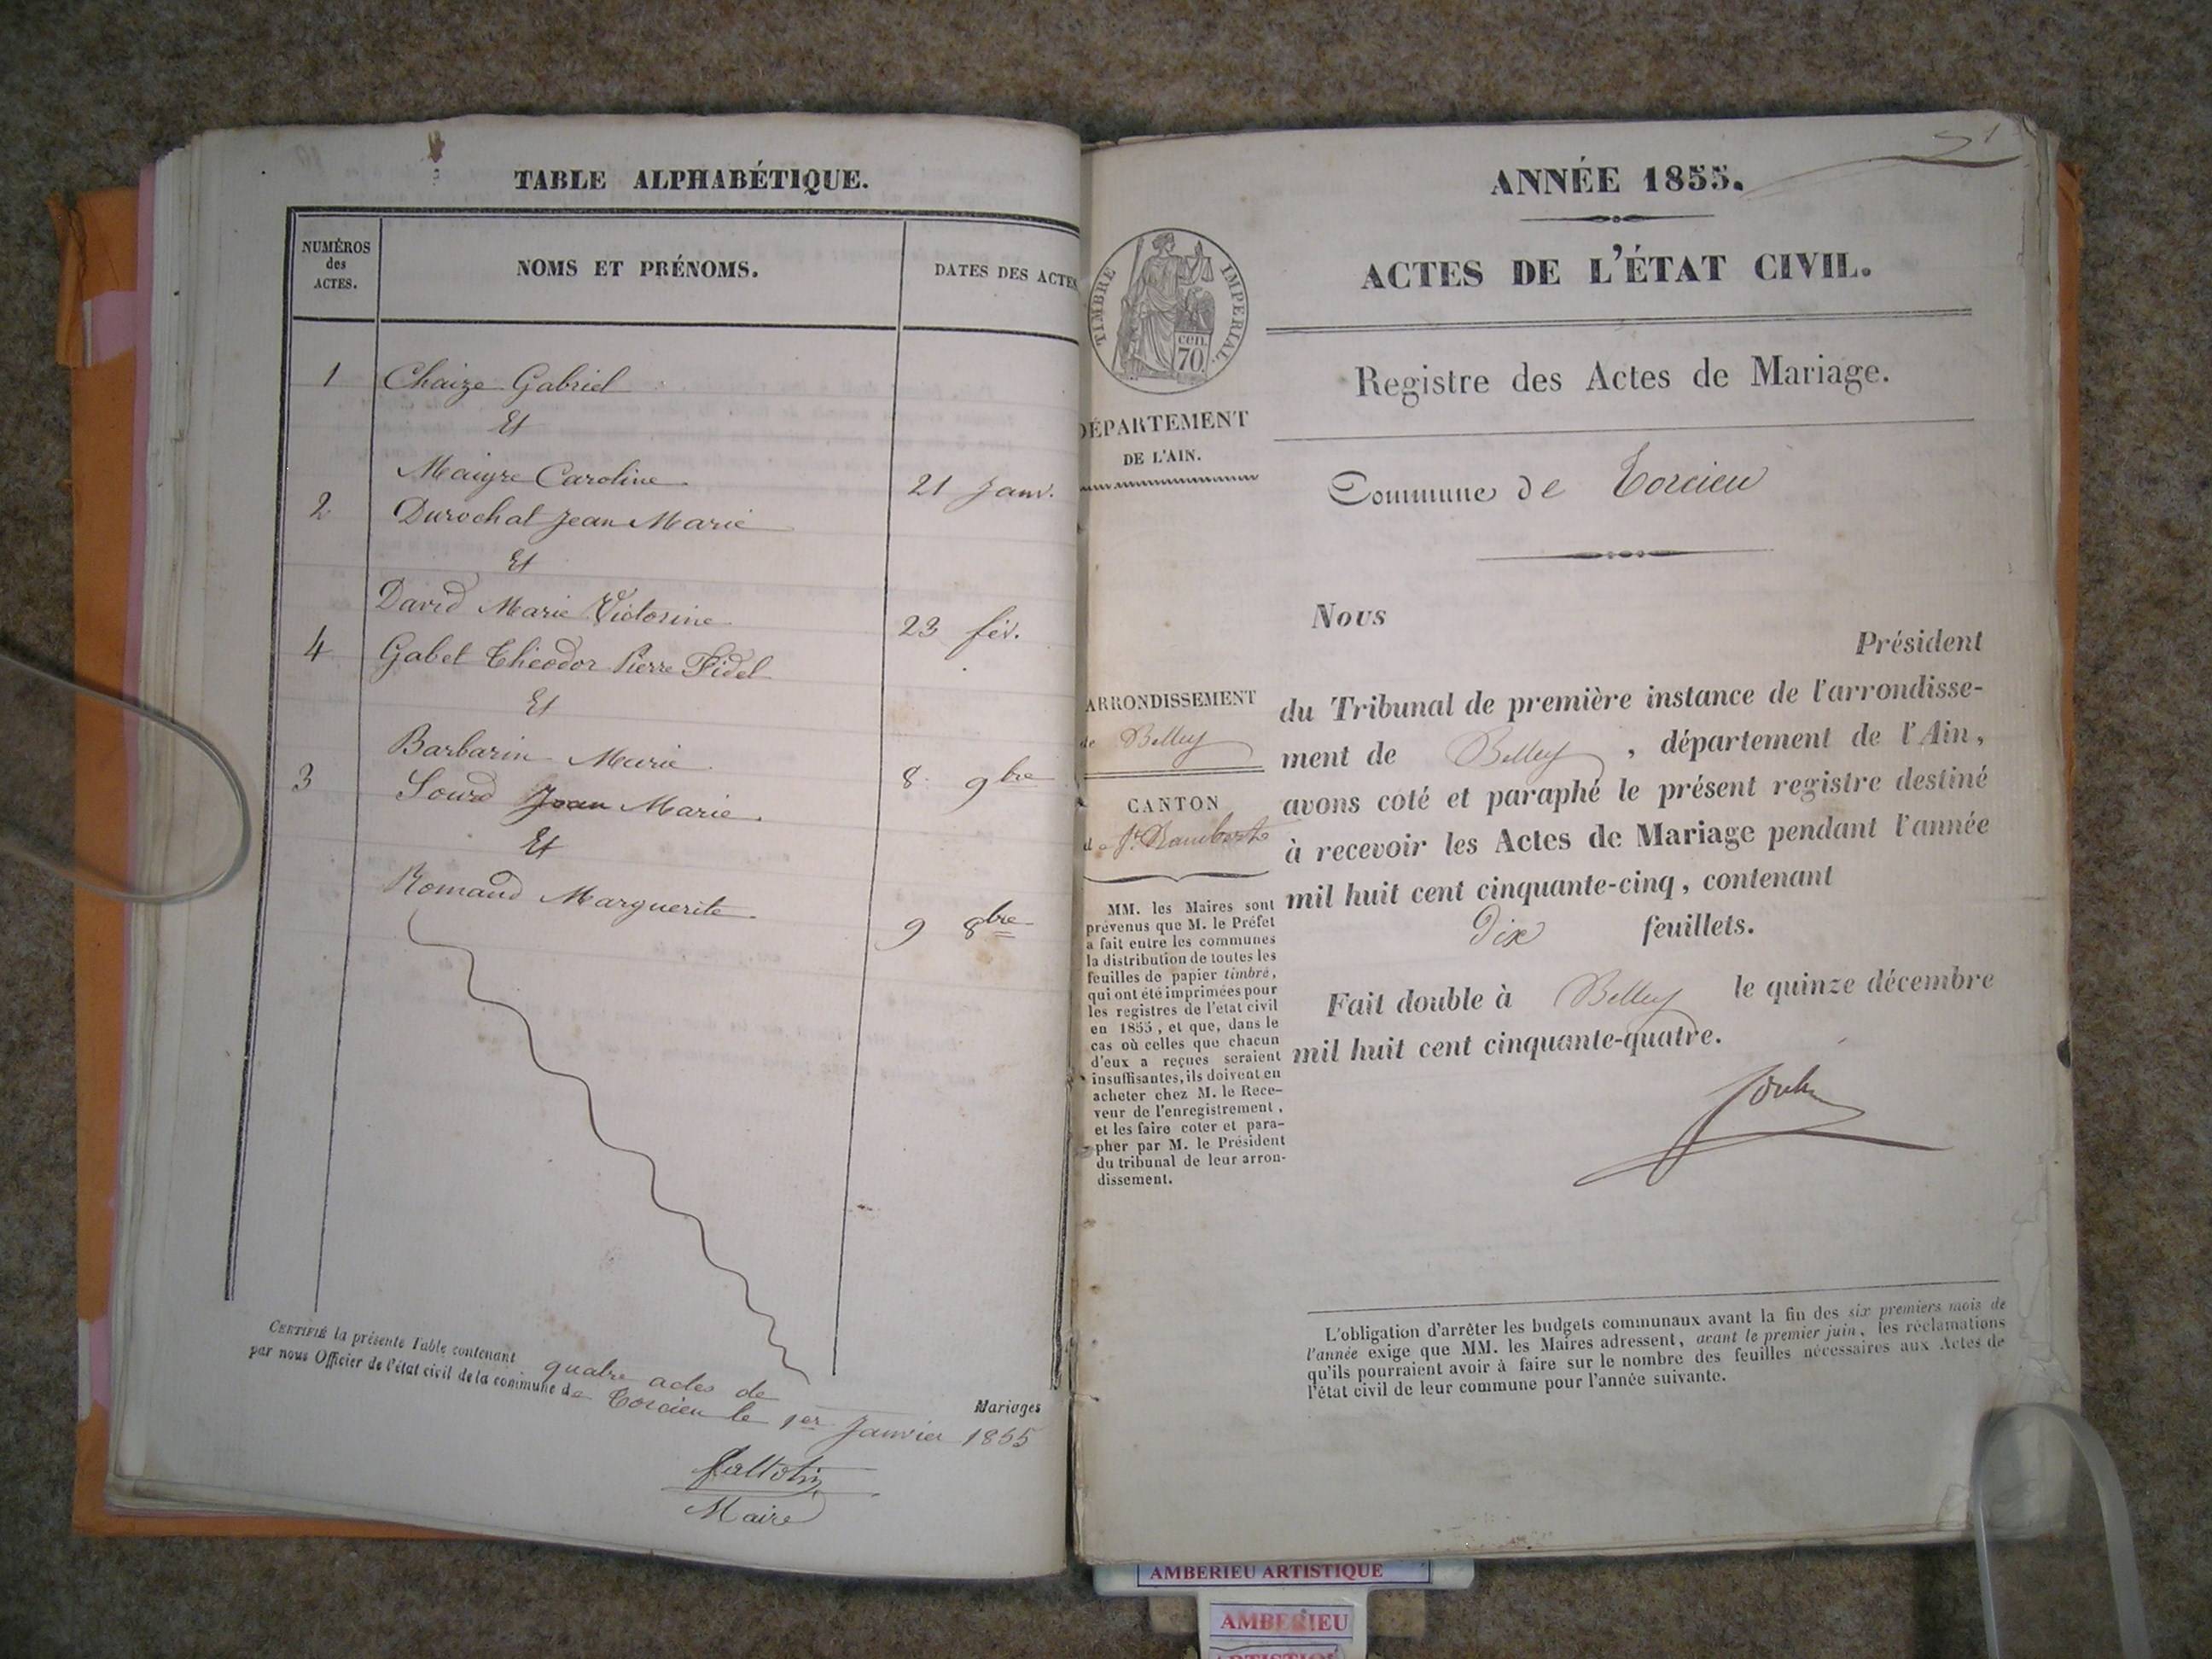 TABLE ALPHABÉTIQUE.
NUMÉROS
des
ACTES.
NOMS ET PRÉNOMS.
DATES DES ACTES
1 Chaize Gabriel
Et
Maigre Caroline 21 Janv.
2 Durochat Jean Marie
Et
David Marie Victorine 23 fév.
4 Gabet Théodor Pierre Fidel
Et
Barbarin Marie 8 9bre
3 Sourd Jean Marie
Et
Romand Marguerite 9 8bre
CERTIFIÉ la présente Table contenant quatre actes de Mariages
par nous Officier de l'état civil de la commune de Torcieu le 1er Janvier 1855
Maire
1
ANNÉE 1855.
ACTES DE L'ÉTAT CIVIL.
TIMBRE IMPERIAL.
cen.
70
Registre des Actes de Mariage.
DÉPARTEMENT
DE L'AIN.
Commune de Torcieu
Nous
Président
ARRONDISSEMENT
de Belley
CANTON
de St. Rambert
du Tribunal de première instance de l'arrondisse-
ment de Belley, département de l'Ain,
avons coté et paraphé le présent registre destiné
à recevoir les Actes de Mariage pendant l'année
mil huit cent cinquante-cinq, contenant
Dix feuillets.
Fait double à Belley le quinze décembre
mil huit cent cinquante-quatre.
MM. les Maires sont
prévenus que M. le Préfet
a fait entre les communes
la distribution de toutes les
feuilles de papier timbré,
qui ont été imprimées pour
les registres de l'état civil
en 1855, et que, dans le
cas où celles que chacun
d'eux a reçues seraient
insuffisantes, ils doivent en
acheter chez M. le Rece-
veur de l'enregistrement,
et les faire coter et para-
pher par M. le Président
du tribunal de leur arron-
dissement.
L'obligation d'arrêter les budgets communaux avant la fin des six premiers mois de
l'année exige que MM. les Maires adressent, avant le premier juin, les réclamations
qu'ils pourraient avoir à faire sur le nombre des feuilles nécessaires aux Actes de
l'état civil de leur commune pour l'année suivante.
AMBERIEU ARTISTIQUE
AMBERIEU
ARTISTIQUE